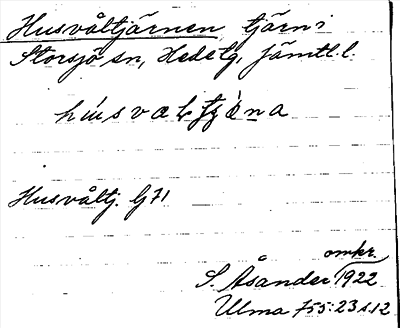 Husvåltjärnen tjärn i
Storsjö sn, Hede tg, Jämtl. l.
Husvåltj. G71
omkr.
S. Åsander 1922
Ulma 755:23 s. 12